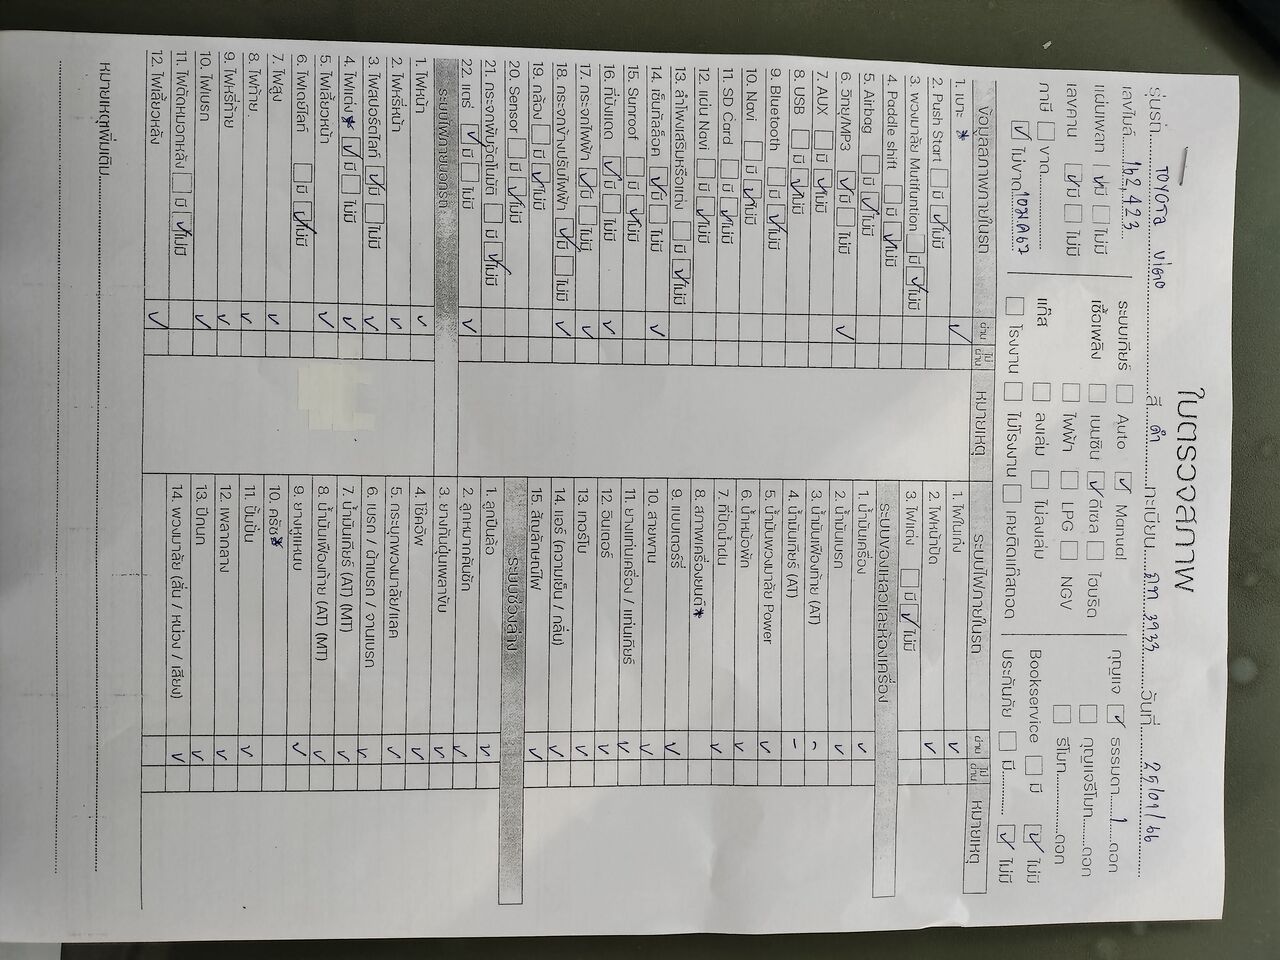 ใบตรวจสภาพ
รุ่นรถ TOYOTA วีโก้ สี ดำ ทะเบียน 3933 วันที่ 25/09/66
เลขไมล์ 162,423 ระบบเกียร์ ☐ Auto ☑ Manual กุญแจ ☑ ธรรมดา 1 ดอก
แผ่นเพลท ☑ มี ☐ ไม่มี เชื้อเพลิง ☐ เบนซิน ☑ ดีเซล ☐ ไฮบริด ☐ กุญแจรีโมท ดอก
เลขคาน ☑ มี ☐ ไม่มี ☐ ไฟฟ้า ☐ LPG ☐ NGV ☐ รีโมท ดอก
ภาษี ☐ ขาด แก๊ส ☐ ลงเล่ม ☐ ไม่ลงเล่ม Bookservice ☐ มี ☑ ไม่มี
☑ ไม่ขาด 10 มค 67 ☐ โรงงาน ☐ ไม่โรงงาน ☐ เคยติดแก๊สถอด ประกันภัย ☐ มี ☑ ไม่มี
ข้อมูลสภาพภายในรถ ผ่าน ไม่ผ่าน หมายเหตุ
1. เบาะ * ✓
2. Push Start ☐ มี ☑ ไม่มี
3. พวงมาลัย Mutifuntion ☐ มี ☑ ไม่มี
4. Paddle shift ☐ มี ☑ ไม่มี
5. Airbag ☐ มี ☑ ไม่มี
6. วิทยุ/MP3 ☑ มี ☐ ไม่มี ✓
7. AUX ☐ มี ☑ ไม่มี
8. USB ☐ มี ☑ ไม่มี
9. Bluetooth ☐ มี ☑ ไม่มี
10. Navi ☐ มี ☑ ไม่มี
11. SD Card ☐ มี ☑ ไม่มี
12. แผ่น Navi ☐ มี ☑ ไม่มี
13. ลำโพงเสริมหรือแต่ง ☐ มี ☑ ไม่มี
14. เซ็นทัลล็อค ☑ มี ☐ ไม่มี ✓
15. Sunroof ☐ มี ☑ ไม่มี
16. ที่บังแดด ☑ มี ☐ ไม่มี ✓
17. กระจกไฟฟ้า ☑ มี ☐ ไม่มี ✓
18. กระจกข้างปรับไฟฟ้า ☑ มี ☐ ไม่มี ✓
19. กล้อง ☐ มี ☑ ไม่มี
20. Sensor ☐ มี ☑ ไม่มี
21. กระจกพับอัตโนมัติ ☐ มี ☑ ไม่มี
22. แตร ☑ มี ☐ ไม่มี ✓
ระบบไฟภายนอกรถ
1. ไฟหน้า ✓
2. ไฟหรี่หน้า ✓
3. ไฟสปอร์ตไลท์ ☑ มี ☐ ไม่มี ✓
4. ไฟแต่ง * ☑ มี ☐ ไม่มี ✓
5. ไฟเลี้ยวหน้า ✓
6. ไฟเดย์ไลท์ ☐ มี ☑ ไม่มี
7. ไฟสูง ✓
8. ไฟท้าย. ✓
9. ไฟหรี่ท้าย ✓
10. ไฟเบรก ✓
11. ไฟตัดหมอกหลัง ☐ มี ☑ ไม่มี
12. ไฟเลี้ยวหลัง ✓
ระบบไฟภายในรถ ผ่าน ไม่ผ่าน หมายเหตุ
1. ไฟในเก๋ง ✓
2. ไฟหน้าปัด ✓
3. ไฟแต่ง ☐ มี ☑ ไม่มี
ระบบของเหลวและห้องเครื่อง
1. น้ำมันเครื่อง ✓
2. น้ำมันเบรก ✓
3. น้ำมันเฟืองท้าย (AT) -
4. น้ำมันเกียร์ (AT) -
5. น้ำมันพวงมาลัย Power ✓
6. น้ำหม้อพัก ✓
7. ที่ปัดน้ำฝน ✓
8. สภาพเครื่องยนต์ *
9. แบตเตอรรี่ ✓
10. สายพาน ✓
11. ยางแท่นเครื่อง / แท่นเกียร์ ✓
12. อินเตอร์ ✓
13. เทอร์โบ ✓
14. แอร์ (ความเย็น / กลิ่น) ✓
15. สัญลักษณ์ไฟ ✓
ระบบช่วงล่าง
1. ลูกปืนล้อ ✓
2. ลูกหมากคันชัก ✓
3. ยางกันฝุ่นเพลาขับ ✓
4. โช้คอัพ ✓
5. กระปุกพวงมาลัย/แลค ✓
6. เบรก / ผ้าเบรก / จานเบรก ✓
7. น้ำมันเกียร์ (AT) (MT) ✓
8. น้ำมันเฟืองท้าย (AT) (MT) ✓
9. ยางหุ้มแหนบ ✓
10. ครัช *
11. ปั๊มปั่น ✓
12. เพลากลาง ✓
13. ปีกนก ✓
14. พวงมาลัย (ลั่น / หน่วง / เสียง) ✓
หมายเหตุเพิ่มเติม